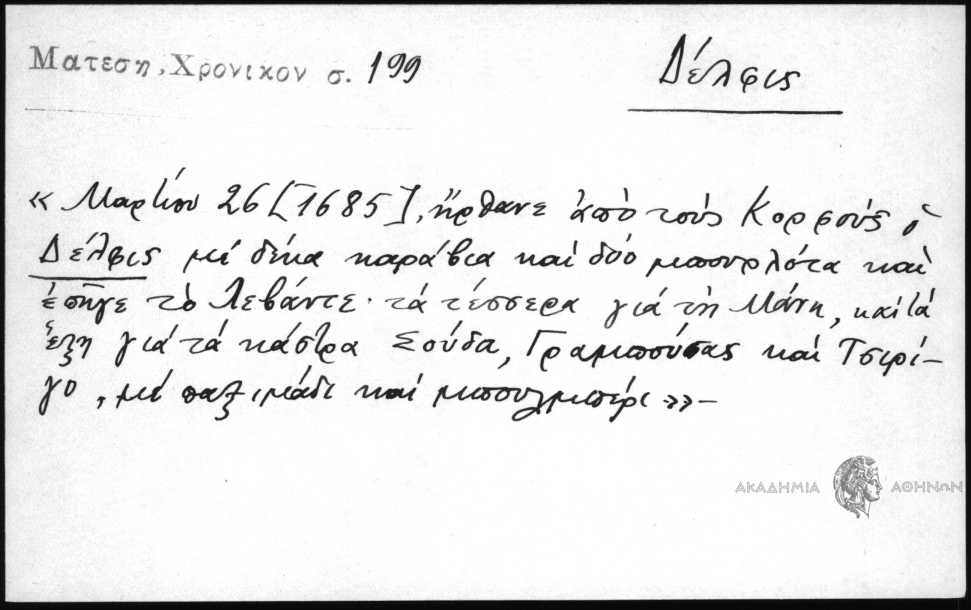 Ματεση, Χρονικον σ. 199
Δέλφις
« Μαρτίου 26 [1685], ἤρθανε ἀπὸ τοὺς Κορφοὺς ὁ
Δέλφις μὲ δέκα καράβια καὶ δύο μπουρλότα καὶ
ἐπῆγε τὸ Λεβάντε· τὰ τέσσερα γιὰ τὴ Μάνη, καὶ τὰ
ἕξη γιὰ τὰ κάστρα Σούδα, Γραμπούσας καὶ Τσιρί-
γο, μὲ παξιμάδι καὶ μπουλμπέρι »–
ΑΚΑΔΗΜΙΑ ΑΘΗΝΩΝ